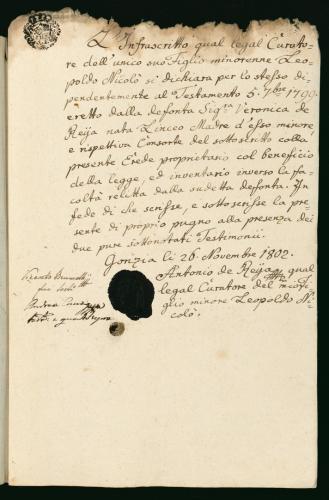 L'Infrascritto qual legal Curato-
re dell'unico suo Figlio minorenne Leo-
poldo Nicolò si dichiara per lo stesso di-
pendentemente al Testamento 5. 7bre 1799
eretto dalla defonta Sigra Veronica de
Reija nata Linceo Madre d'esso minore,
e rispettiva Consorte del sottoscritto colla
presente Erede proprietario col beneficio
della legge, ed inventario inverso la fa-
coltà relitta dalla sudetta defonta. In
fede di che scrisse, e sottoscrisse la pre-
sente di proprio pugno alla presenza dei
due pure sottonotati Testimonii.
Gorizia li 26 Novembre 1802.
Antonio de Reija qual
legal Curatore del mio fi-
glio minore Leopoldo Ni-
colò.
Andrea